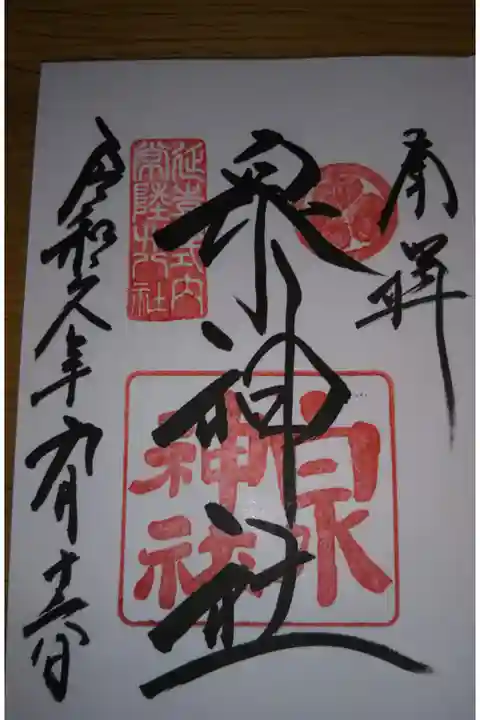 奉拝
泉神社
延喜式内
常陸廿八社
泉
神社
令和 年 月十 日